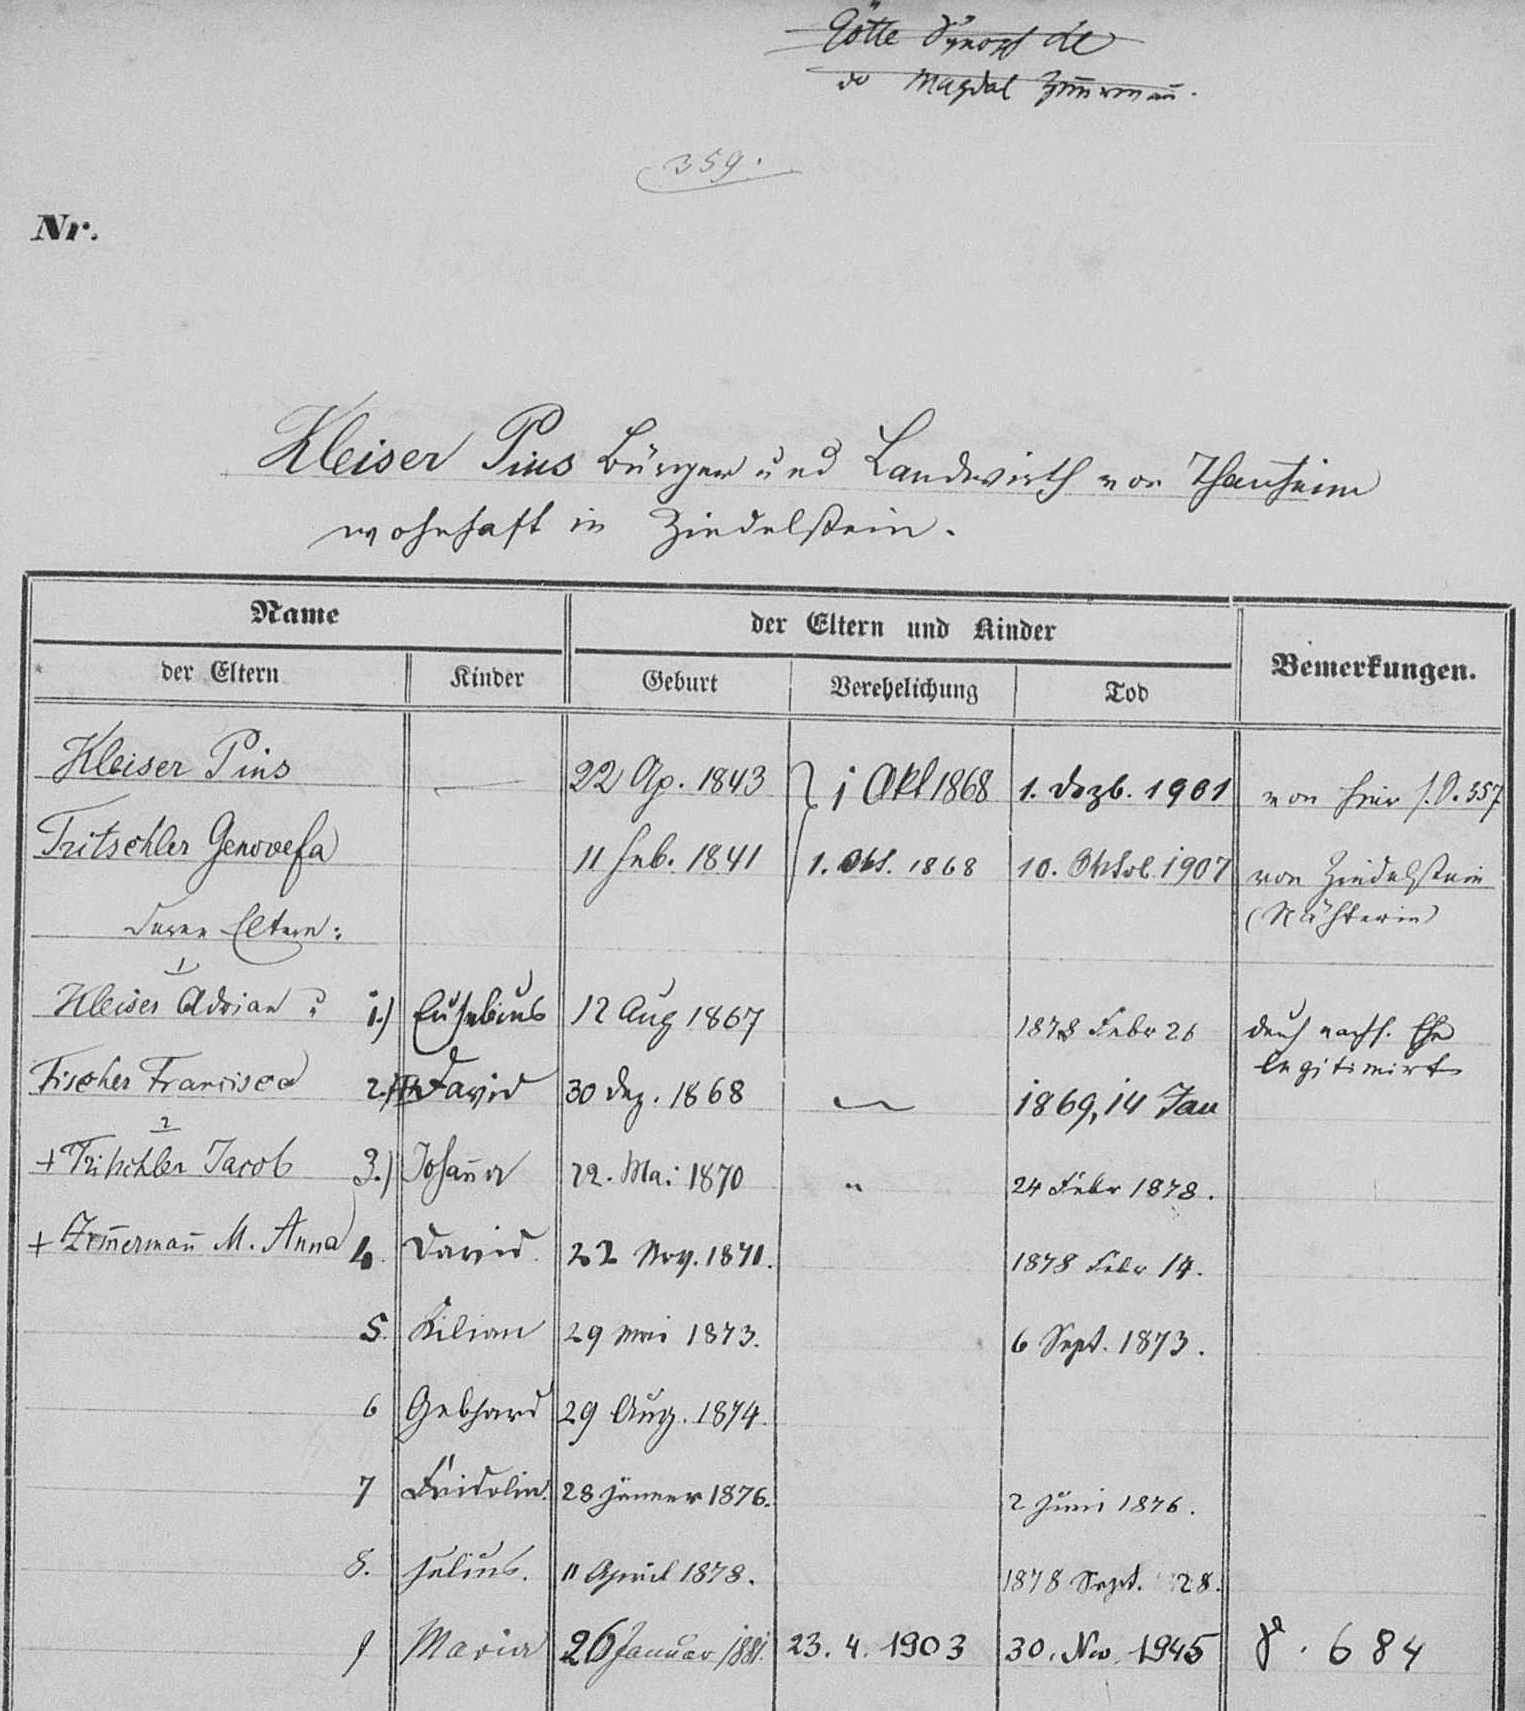 Götte
do Magdal Zim̄erman̄.
359.
Nr.
Kleiser Pius Bürger und Landwirth von Thanheim
wohnhaft in Zindelstein.
Name
der Eltern und Kinder
Bemerkungen.
der Eltern
Kinder
Geburt
Verehelichung
Tod
Kleiser Pius — 22 Ap. 1843 1 Okt 1868 1. Dezb. 1901 von hier f. O. 357
Tritschler Genovefa 11 Feb. 1841 1. Okt. 1868 10. Oktob. 1907 von Zindelstein
(Nähterin)
deren Eltern:
1
Kleiser Adrian 1.) Eusebius 12 Aug 1867 1878 Febr 26 durch nachf. Ehe
legitimirt
Fischer Francisca 2.) David 30 Dez. 1868 1869, 14 Jan
2
+ Tritschler Jacob 3.) Johan̄a 22. Mai 1870 " 24 Febr 1878.
+ Zim̄erman̄ M. Anna 4. David 22 Nov. 1871. 1878 Febr 14.
5. Kilian 29 Mai 1873. 6 Sept. 1873.
6 Gebhard 29 Aug. 1874.
7 Fridolin. 28 Jänner 1876. 2 Juni 1876.
8. Julius. 11 April 1878. 1878 Sept. 28.
9 Maria 26 Januar 1881. 23. 4. 1903 30. Nov. 1945 F. 684